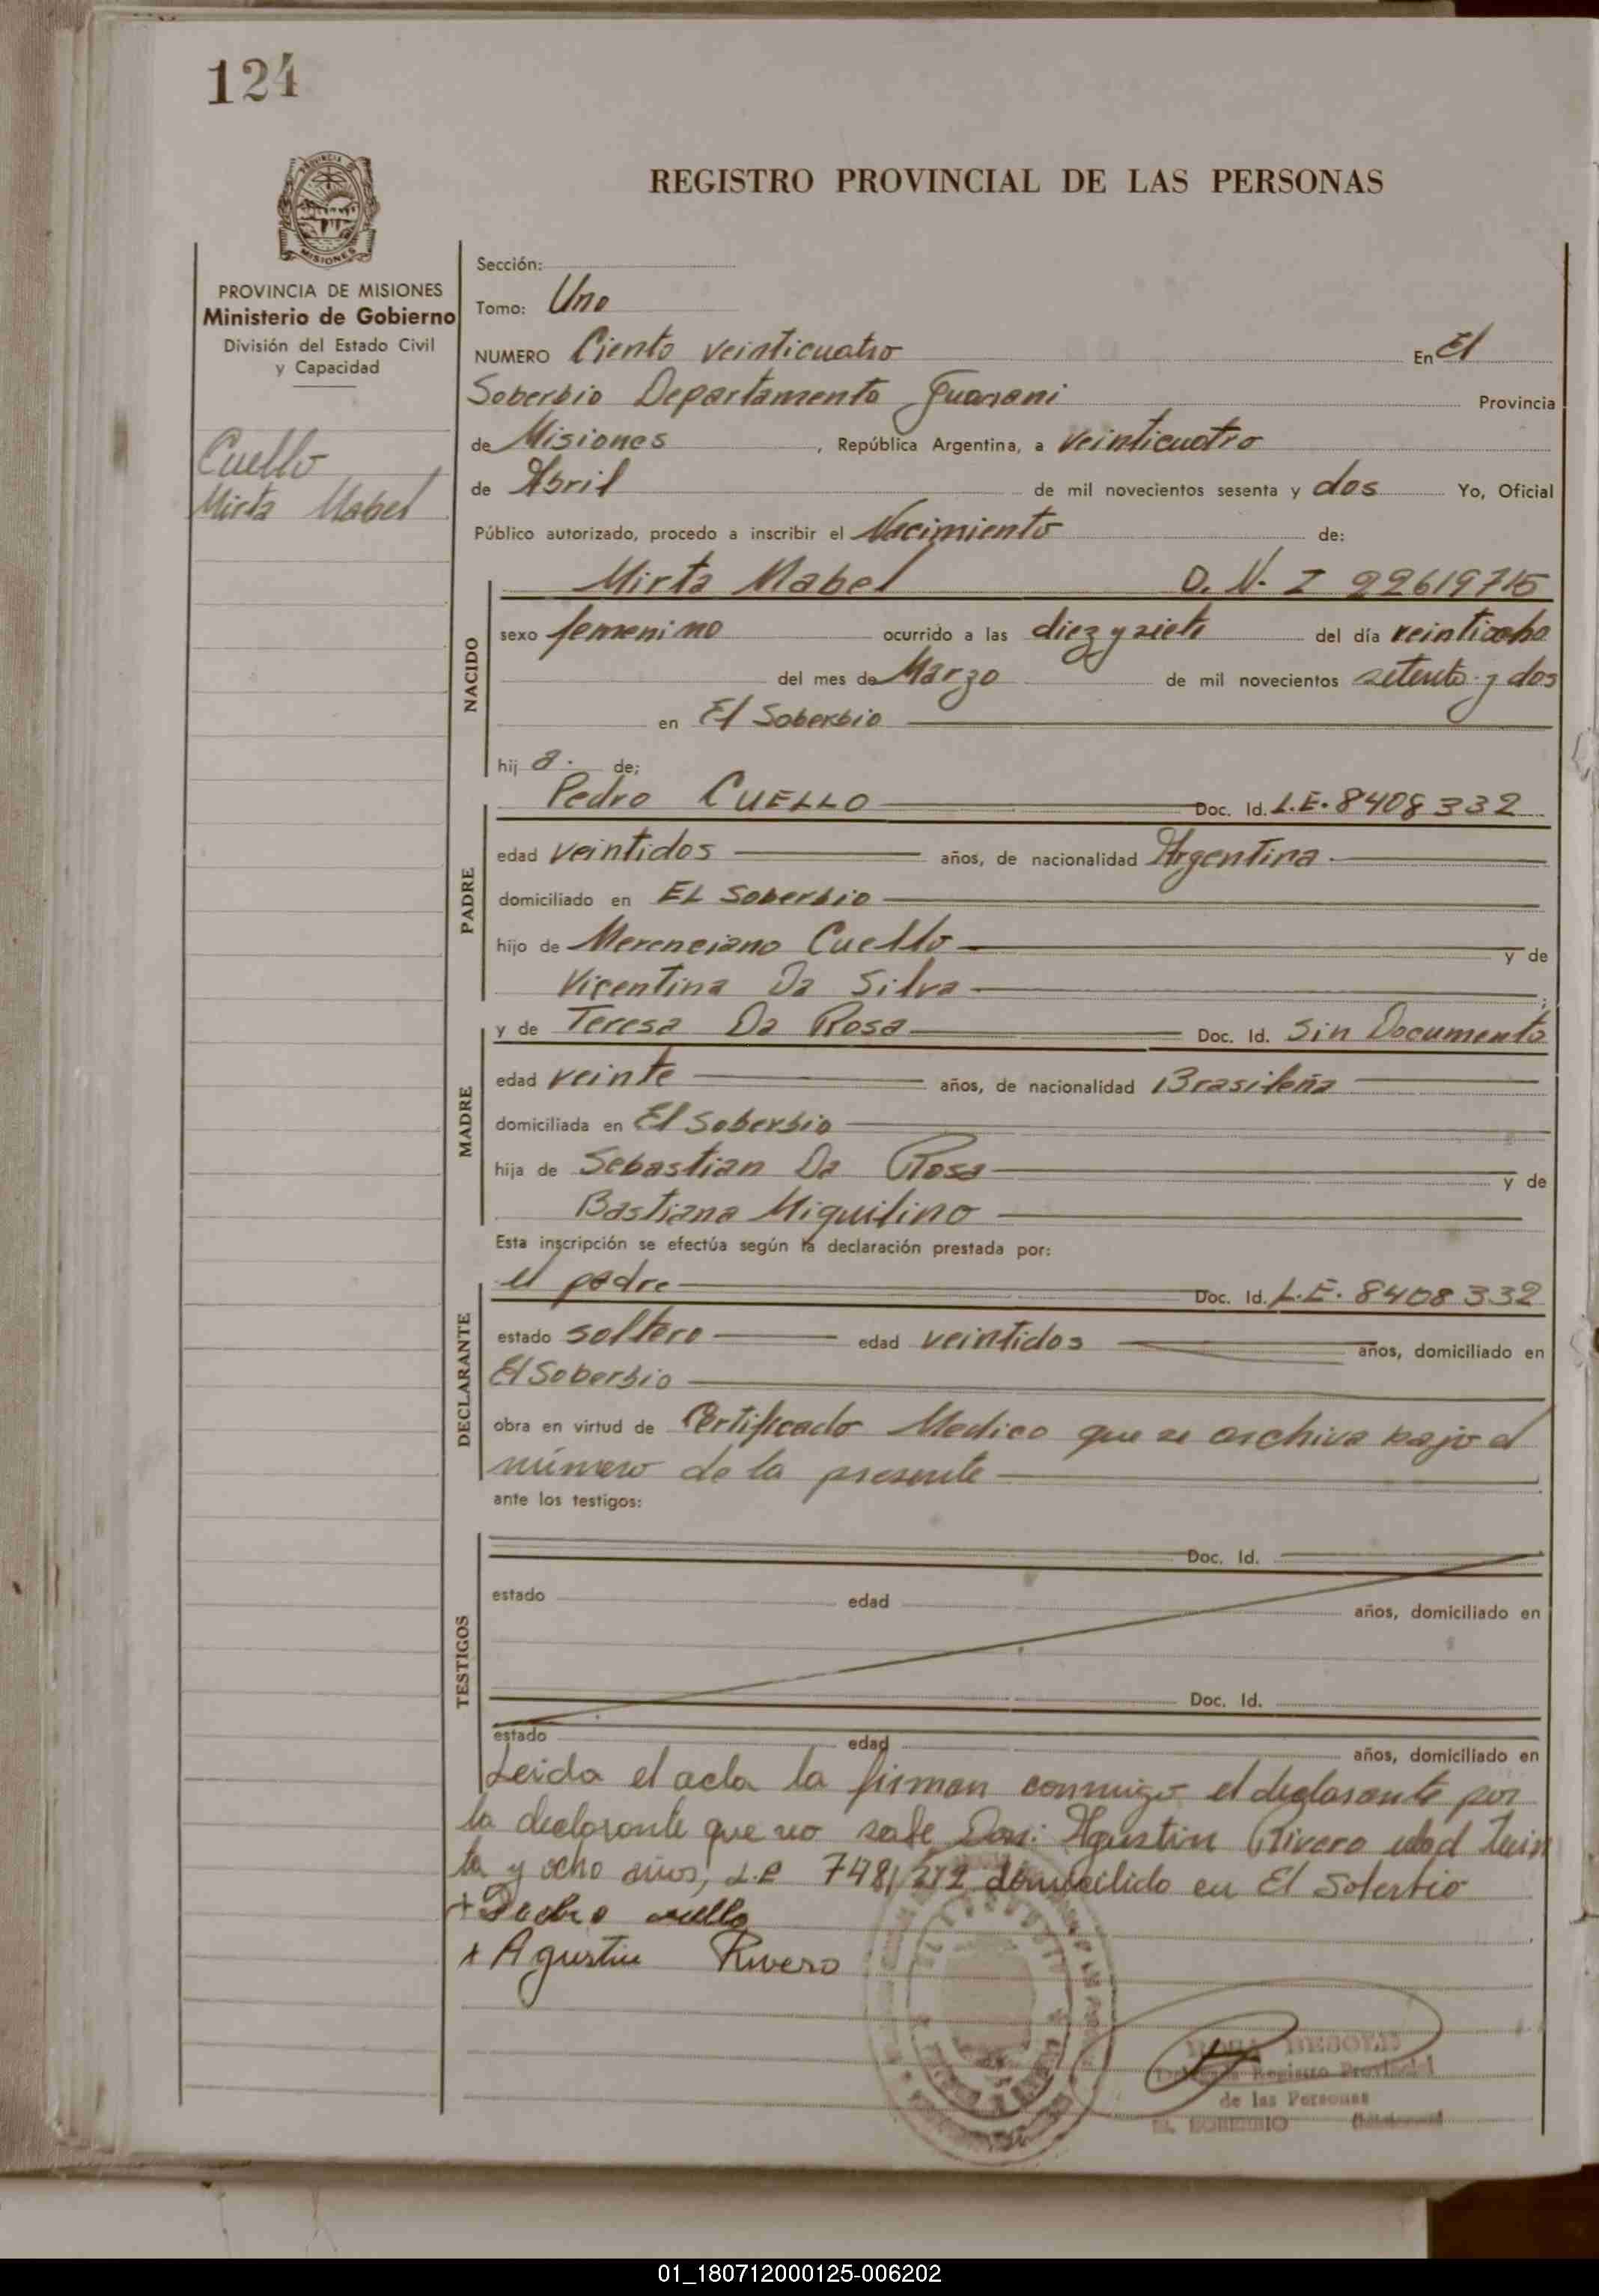 124
PROVINCIA DE
MISIONES
REGISTRO PROVINCIAL DE LAS PERSONAS
PROVINCIA DE MISIONES
Ministerio de Gobierno
División del Estado Civil
y Capacidad
Cuello
Mirta Mabel
Sección:
Tomo: Uno
NUMERO Ciento veinticuatro En El
Soberbio Departamento Guarani Provincia
de Misiones, República Argentina, a veinticuatro
de Abril de mil novecientos sesenta y dos Yo, Oficial
Público autorizado, procedo a inscribir el Nacimiento de:
NACIDO
Mirta Mabel D. N. I 22619715
sexo femenino ocurrido a las diez y siete del día veintiocho
del mes de Marzo de mil novecientos setenta y dos
en El Soberbio
hij a. de;
PADRE
Pedro CUELLO Doc. Id. L.E. 8408332
edad veintidos años, de nacionalidad Argentina.
domiciliado en EL Soberbio
hijo de Merenciano Cuello y de
Vicentina Da Silva
MADRE
y de Teresa Da Rosa Doc. Id. Sin Documento
edad veinte años, de nacionalidad Brasileña
domiciliada en El Soberbio
hija de Sebastian Da Rosa y de
Bastiana Miquilino
Esta inscripción se efectúa según la declaración prestada por:
DECLARANTE
el padre Doc. Id. L.E. 8408332
estado soltero edad veintidos años, domiciliado en
El Soberbio
obra en virtud de Certificado Medico que se archiva bajo el
número de la presente
ante los testigos:
TESTIGOS
Doc. Id.
estado edad años, domiciliado en
Doc. Id.
estado edad años, domiciliado en
Leida el acta la firman conmigo el declarante por
la declarante que no sabe Don: Agustin Rivero edad trein
ta y ocho años, L.E 7481212 domicilido en El Soberbio
+ Pedro cuello
x Agustin Rivero
Registro Provincial
de las Personas
EL SOBERBIO
01_180712000125-006202